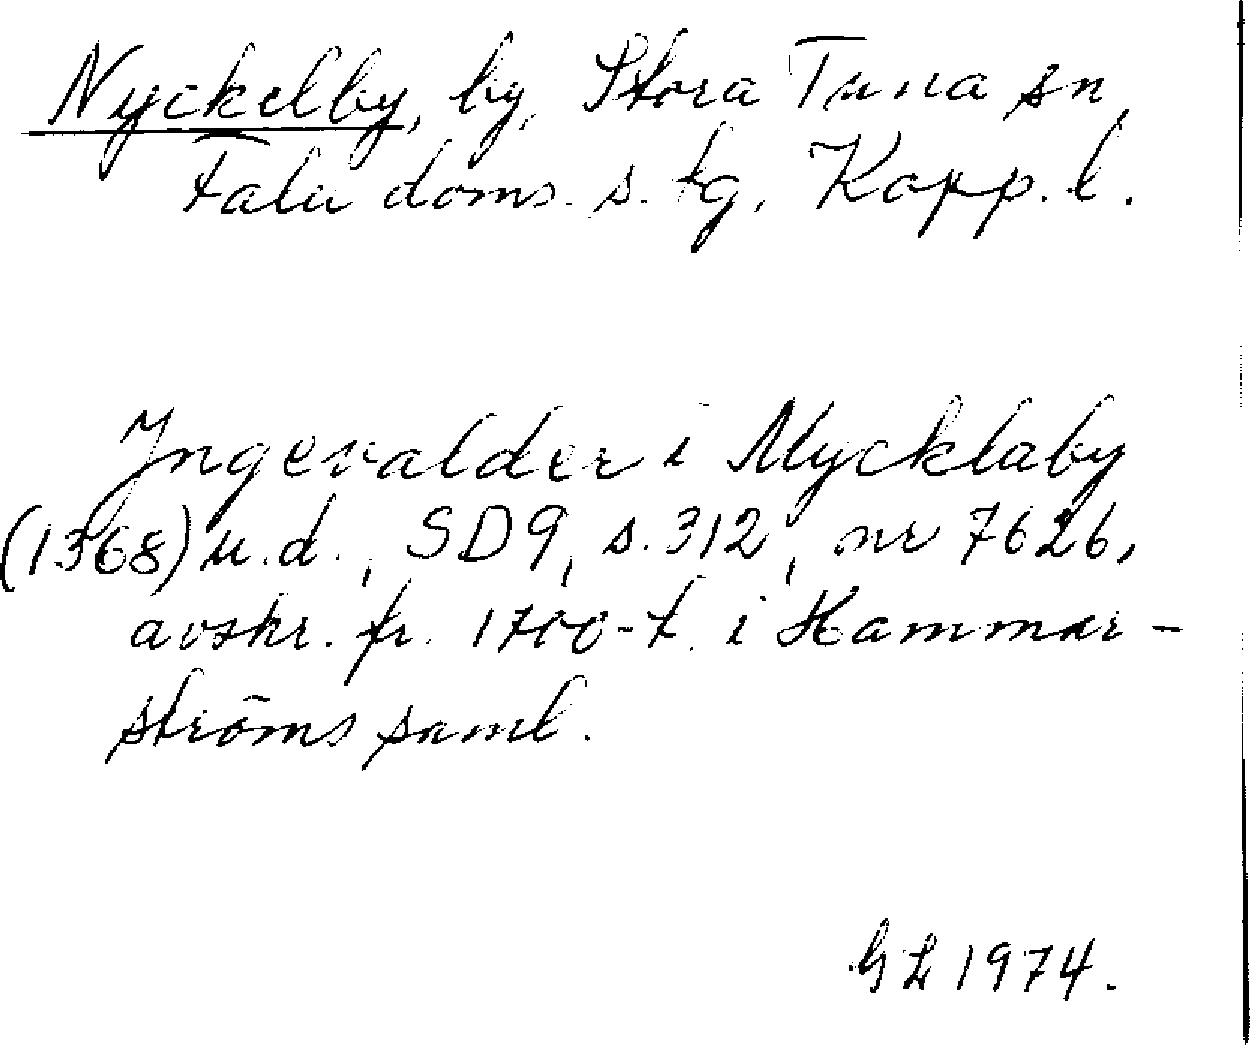 Nyckelby, by, Stora Tuna sn,
Falu doms. s. tg, Kopp. l.
Jngevalder i Mycklaby
(1368) u.d., SD9, s. 312, nr 7626,
avskr. fr. 1700-t. i Hammar-
ströms saml.
GL 1974.